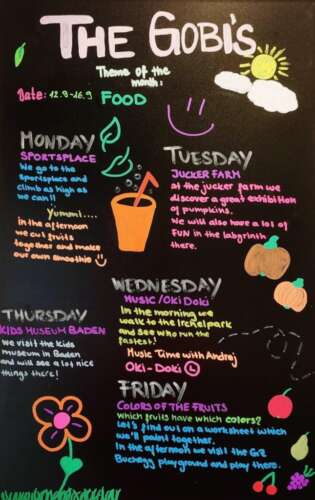 THE GOBI'S
Theme of the
month:
Date: 12.9-16.9 FOOD
MONDAY
SPORTSPLACE
We go to the
sportsplace and
climb as high as
we can!!
Yummi....
in the afternoon
we cut fruits
together and make
our own smoothie
TUESDAY
JUCKER FARM
at the jucker farm we
discover a great exhibition
of pumpkins.
We will also have a lot of
FUN in the labyrinth
there.
WEDNESDAY
MUSIC / Oki Doki
In the morning we
walk to the Irchelpark
and see who run the
fastest!
Music Time with Andrej
Oki-Doki L
THURSDAY
KIDS MUSEUM BADEN
We visit the kids
museum in Baden
and will see a lot nice
things there!
FRIDAY
COLORS OF THE FRUITS
Which fruits have which colors?
Let's find out on a worksheet which
we'll paint together.
In the afternoon we visit the GZ
Buchegg playground and play there.